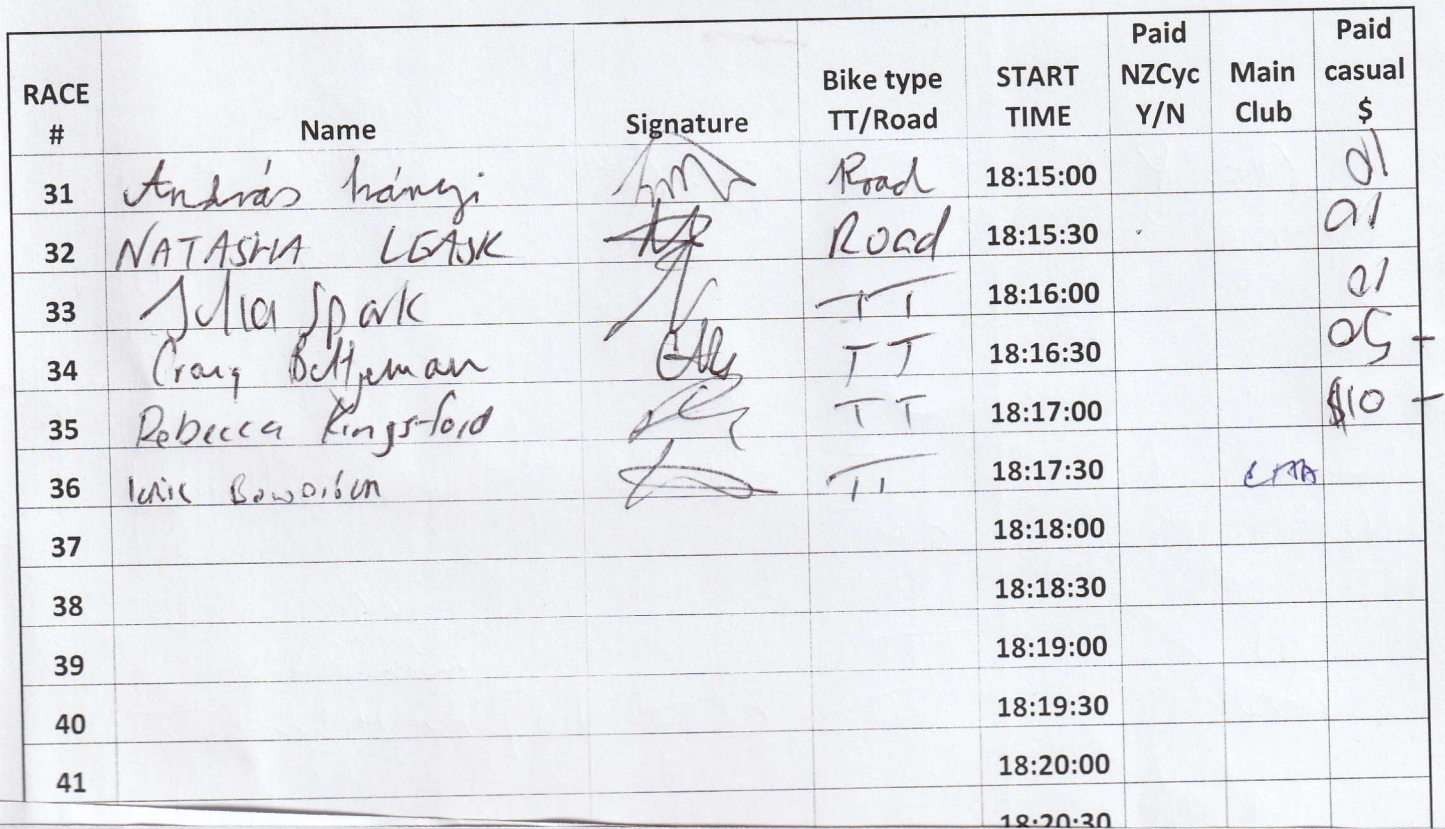 RACE # Name Signature Bike type TT/Road START TIME Paid NZCyc Y/N Main Club Paid casual $
31 András Road 18:15:00 10
32 NATASHA LEASK Road 18:15:30 10
33 Julia Spark TT 18:16:00 10
34 Craig TT 18:16:30
35 Rebecca Kingsford TT 18:17:00 $10 -
36 TT 18:17:30
37 18:18:00
38 18:18:30
39 18:19:00
40 18:19:30
41 18:20:00
18:20:30